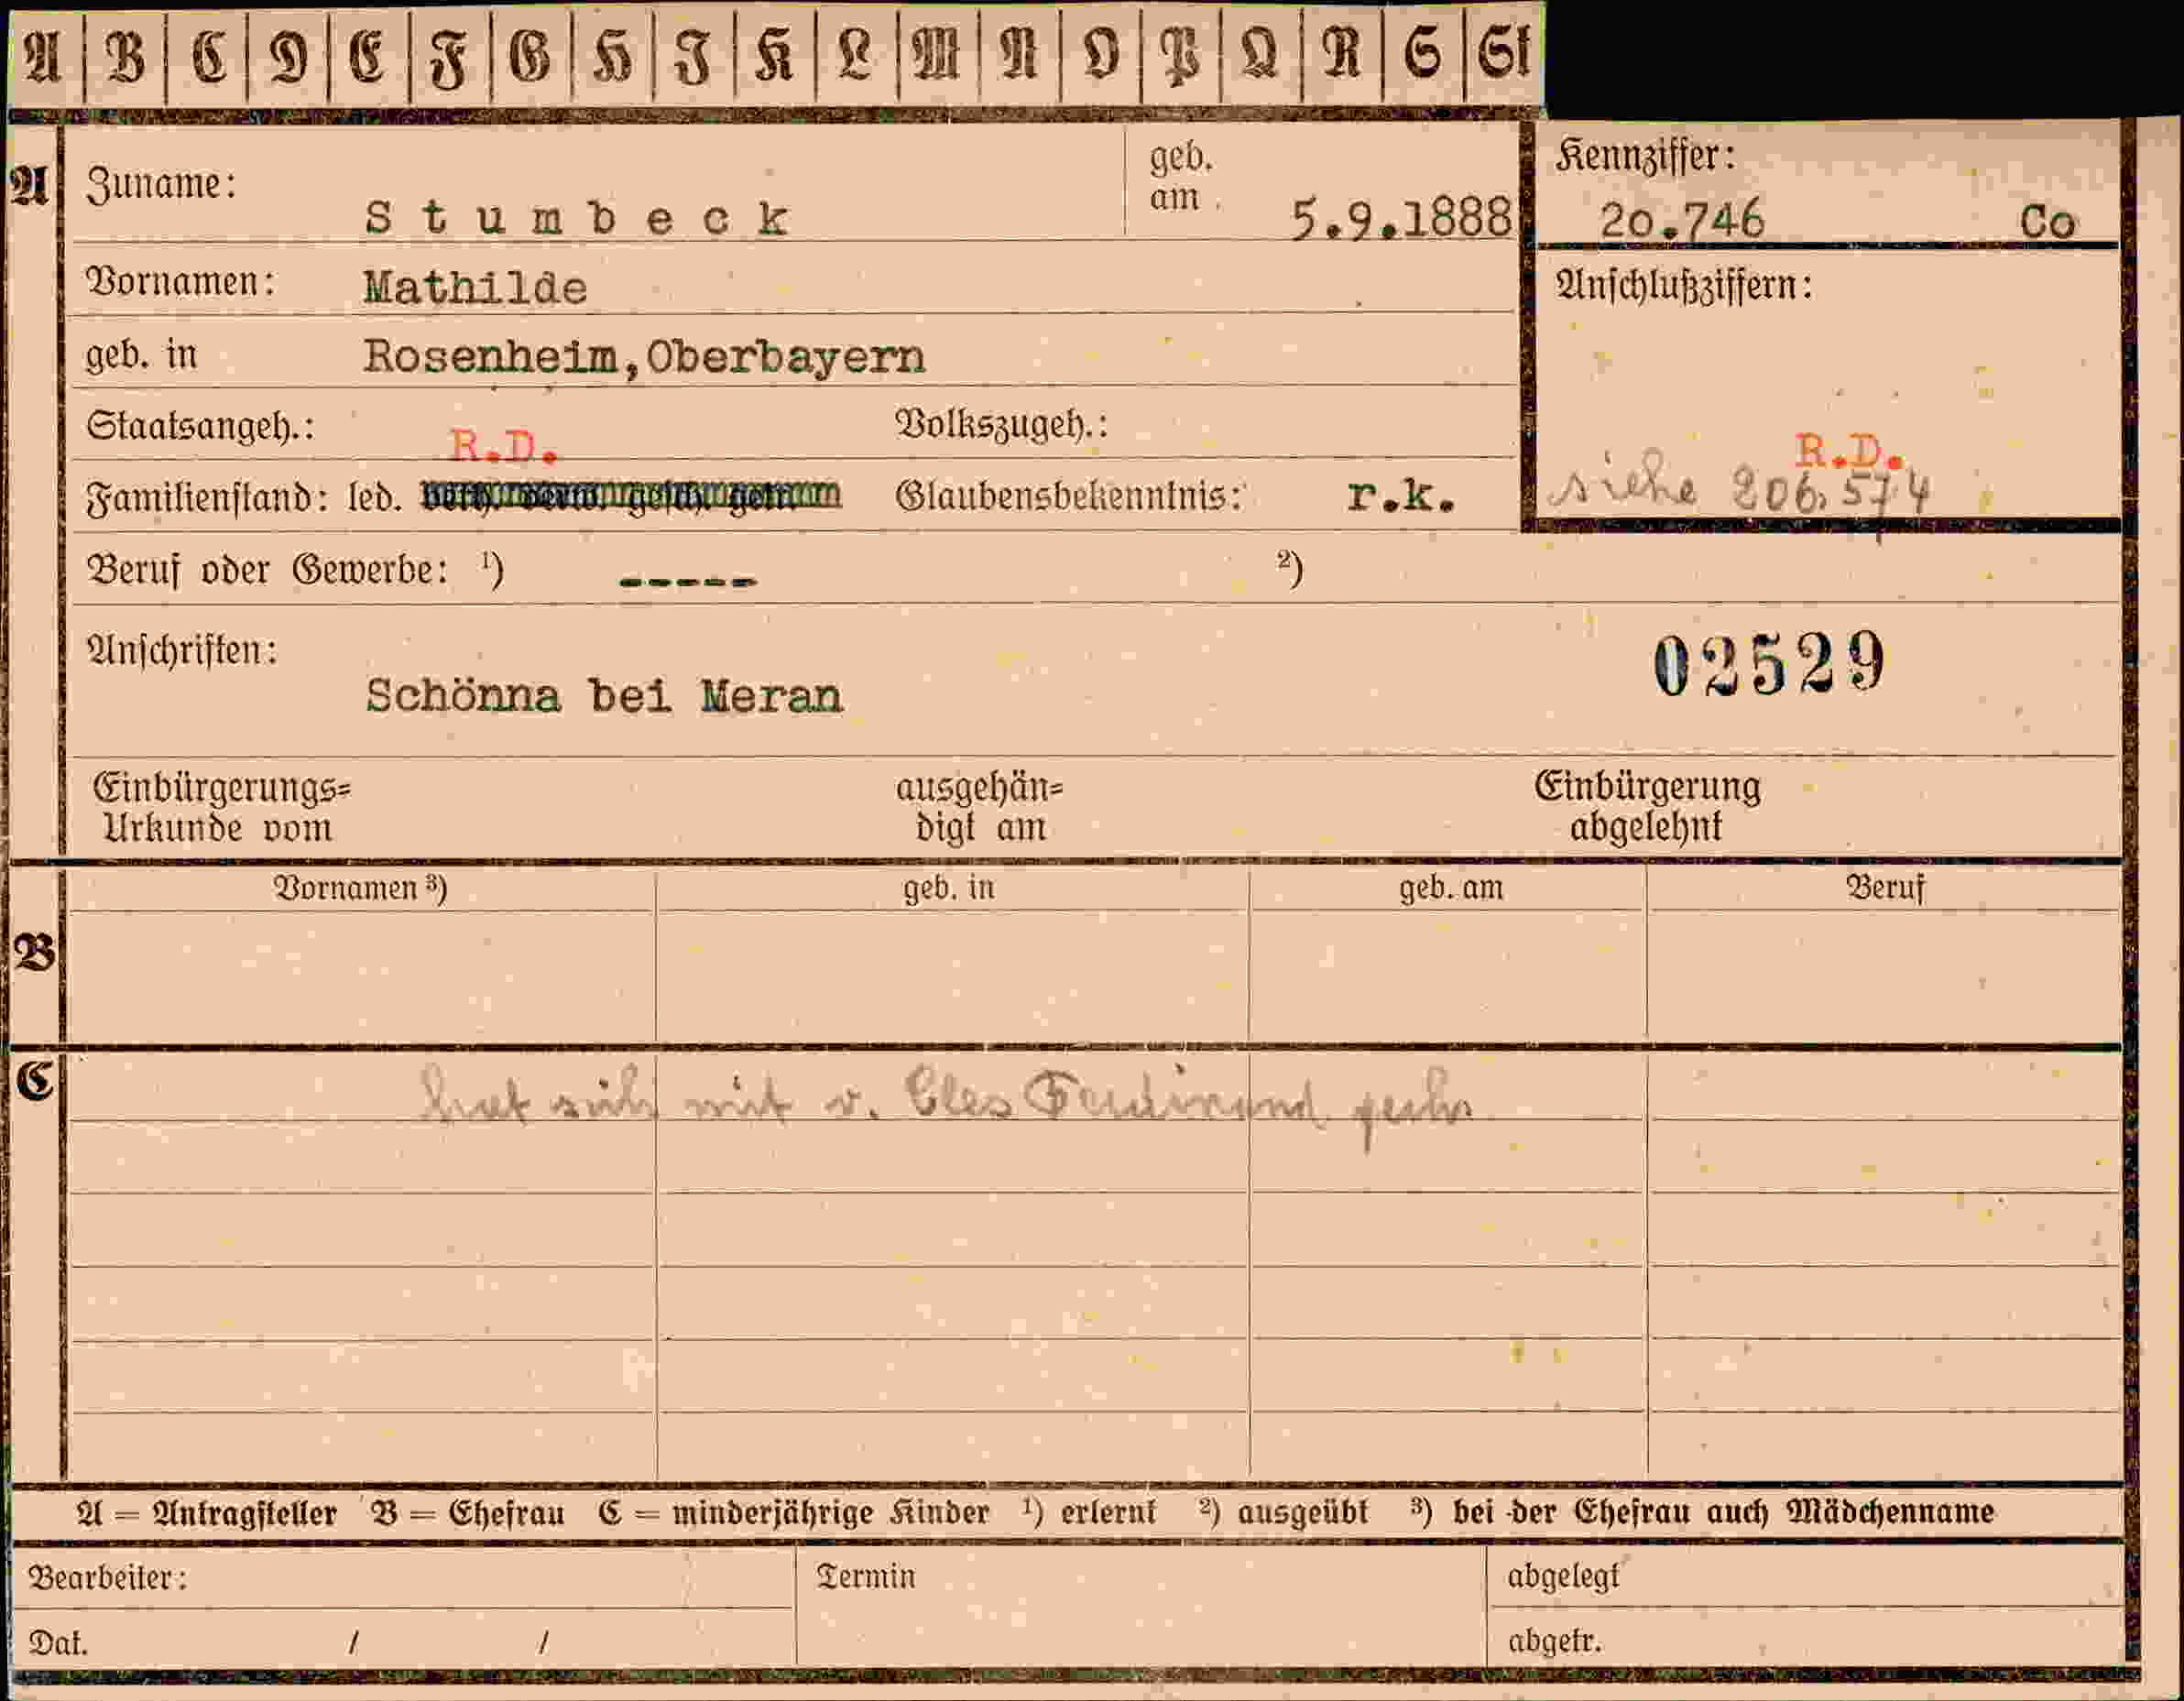 A B C D E F G H I K L M N O P Q R S St
A Zuname: Stumbeck geb. am 5.9.1888
Kennziffer: 20.746 Co
Vornamen: Mathilde
Anschlußziffern:
geb. in Rosenheim, Oberbayern
Staatsangeh.: R.D. Volkszugeh.:
R.D.
siehe 206.574
Familienstand: led. verh. verw. gesch. getrennt Glaubensbekenntnis: r.k.
Beruf oder Gewerbe: ¹) ----- ²)
Anschriften: 02529
Schönna bei Meran
Einbürgerungs= ausgehän= Einbürgerung
Urkunde vom digt am abgelehnt
Vornamen ³) geb. in geb. am Beruf
B
C hat sich mit v. Cles Ferdinand
A = Antragsteller B = Ehefrau C = minderjährige Kinder ¹) erlernt ²) ausgeübt ³) bei der Ehefrau auch Mädchenname
Bearbeiter: Termin abgelegt
Dat. / / abgetr.